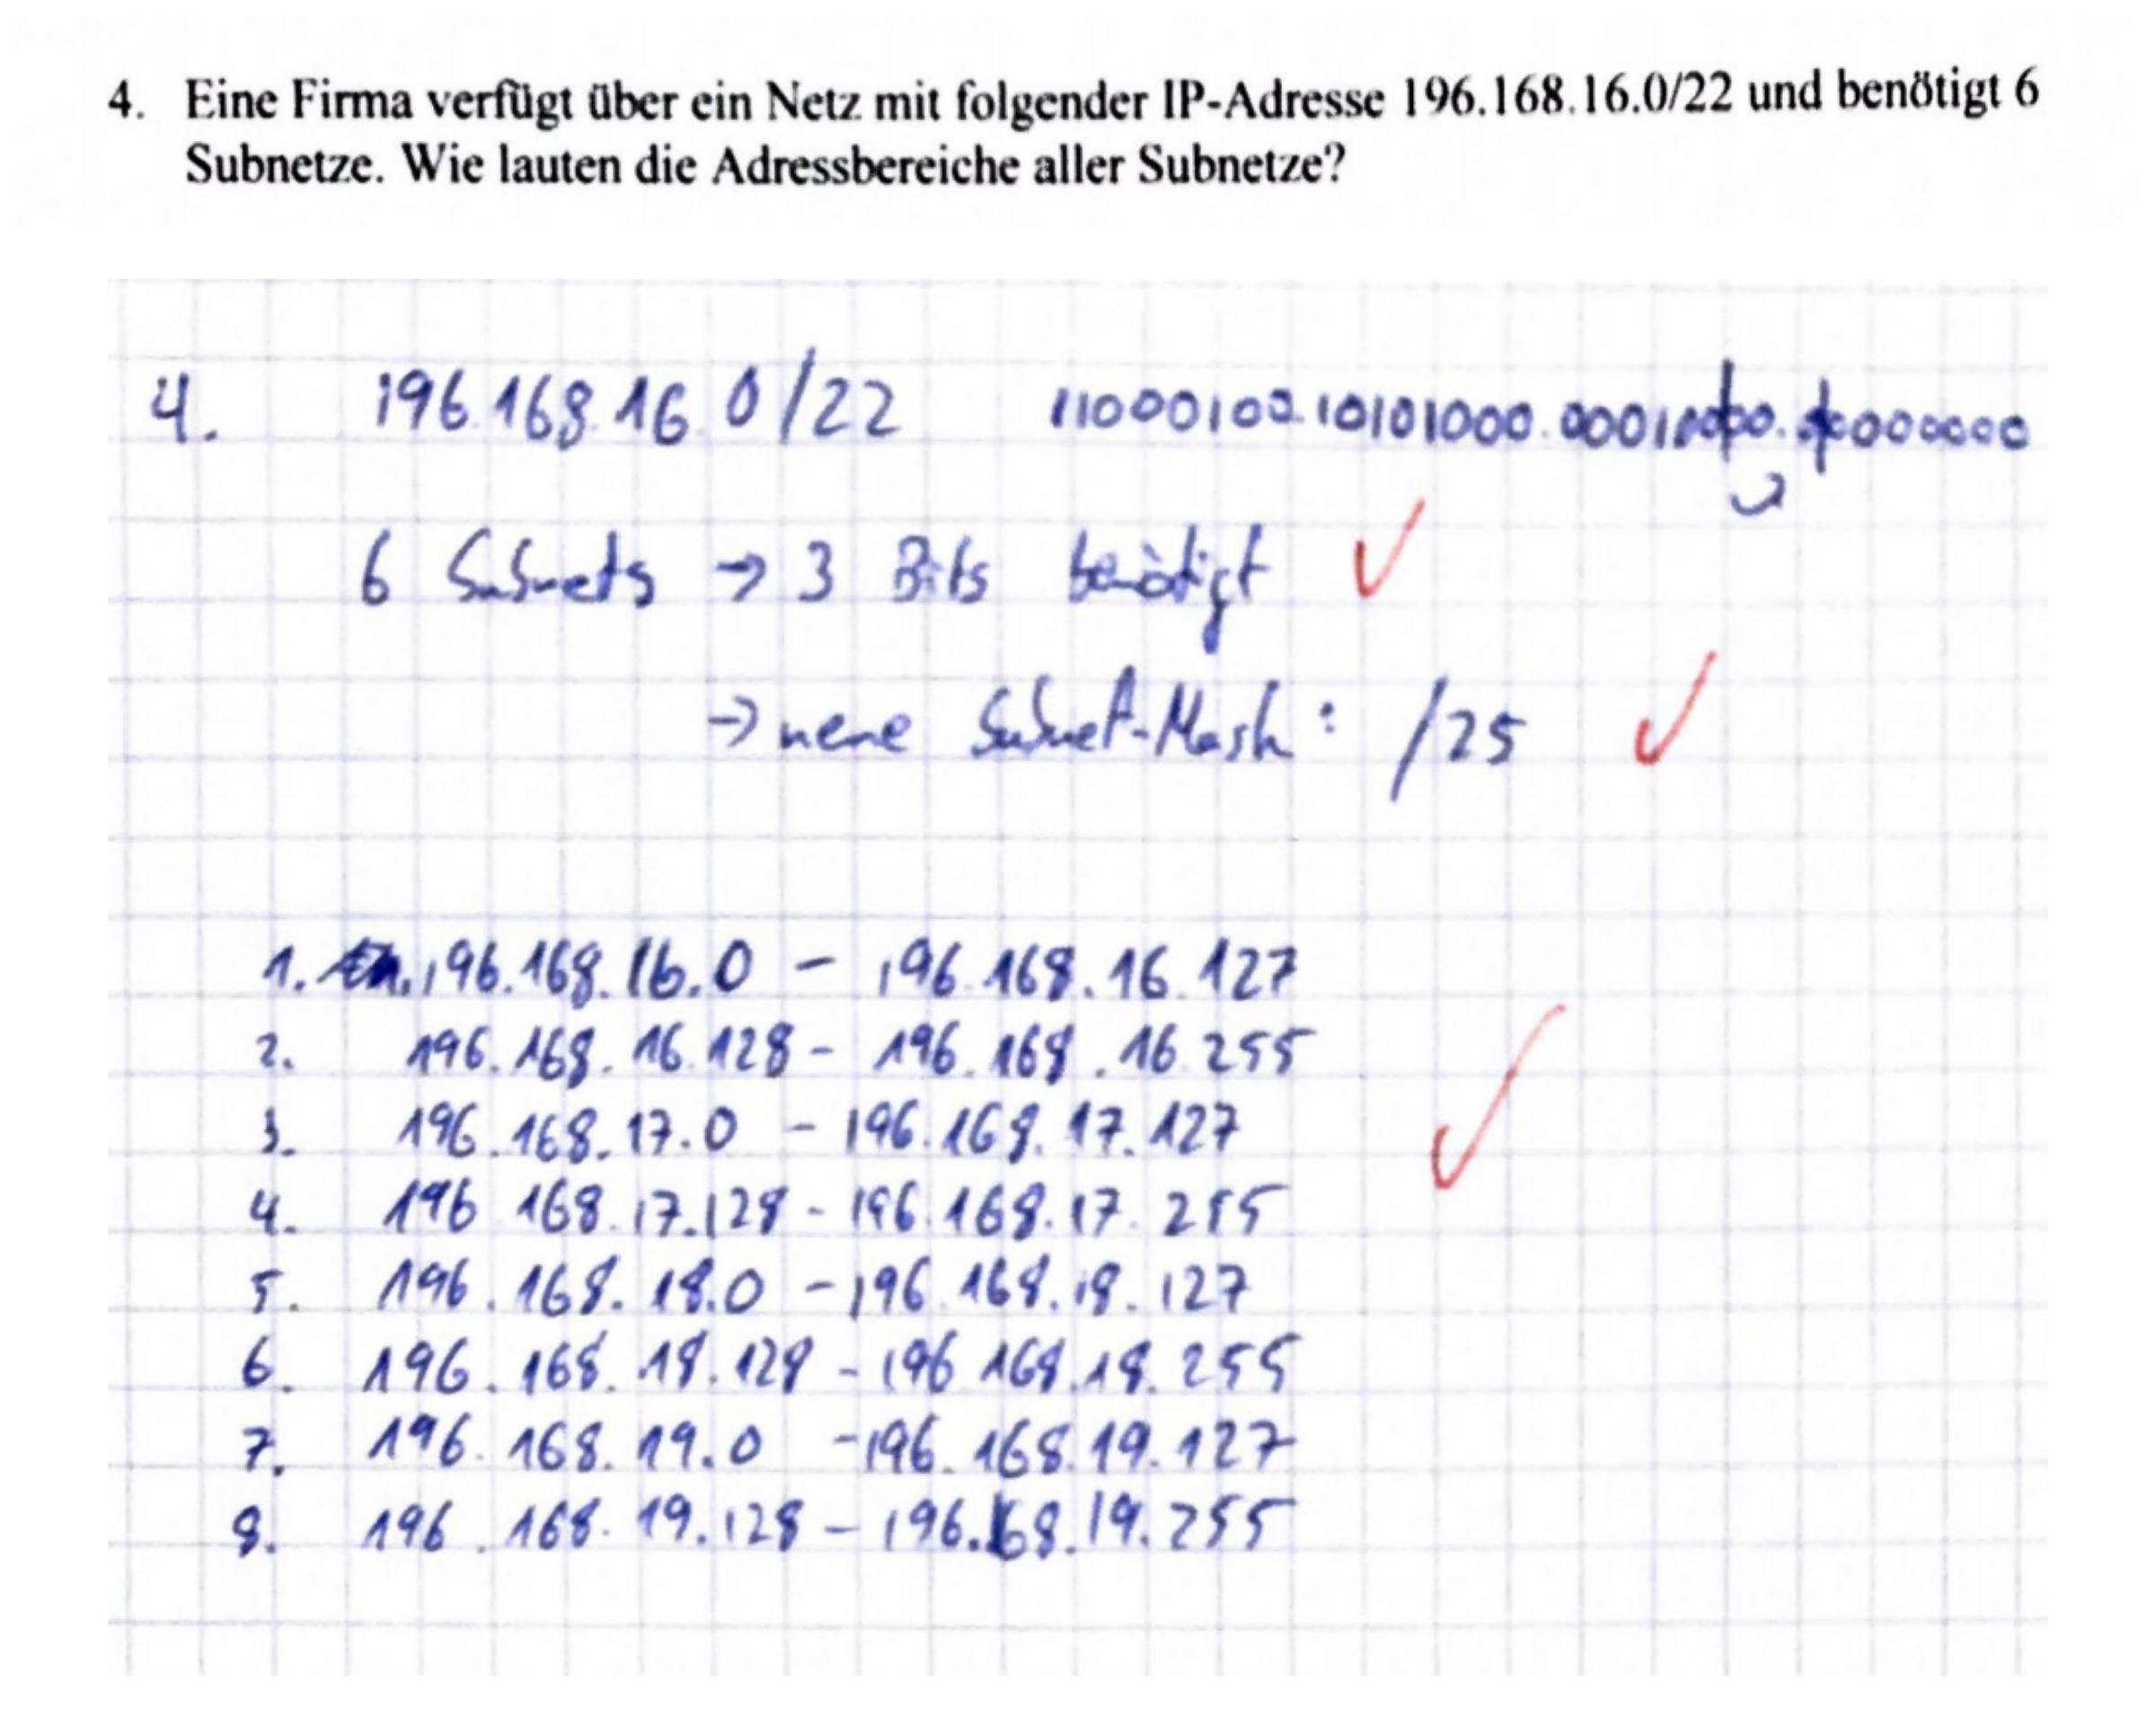 4. Eine Firma verfügt über ein Netz mit folgender IP-Adresse 196.168.16.0/22 und benötigt 6
Subnetze. Wie lauten die Adressbereiche aller Subnetze?
4. 196.168.16.0/22 11000100.10101000.000
6 Subnets → 3 Bits benötigt ✓
→ neue Subnet-Mask: /25 ✓
1. 196.168.16.0 - 196.168.16.127
2. 196.168.16.128 - 196.168.16.255
3. 196.168.17.0 - 196.168.17.127
4. 196.168.17.128 - 196.168.17.255
5. 196.168.18.0 - 196.168.18.127
6. 196.168.18.128 - 196.168.18.255
7. 196.168.19.0 - 196.168.19.127
8. 196.168.19.128 - 196.168.19.255